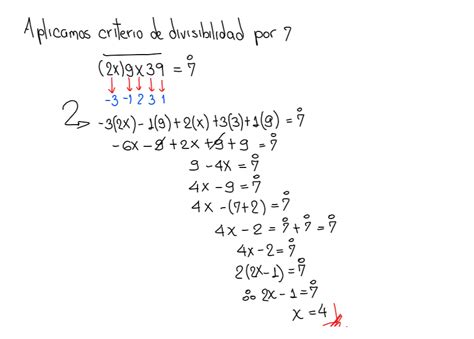 Aplicamos criterio de divisibilidad por 7
(2x)9x39 = 7̊
-3 -1 2 3 1
-3(2x) - 1(9) + 2(x) + 3(3) + 1(9) = 7̊
-6x - 9 + 2x + 9 + 9 = 7̊
9 - 4x = 7̊
4x - 9 = 7̊
4x - (7+2) = 7̊
4x - 2 = 7̊ + 7̊ = 7̊
4x - 2 = 7̊
2(2x - 1) = 7̊
∴ 2x - 1 = 7̊
x = 4